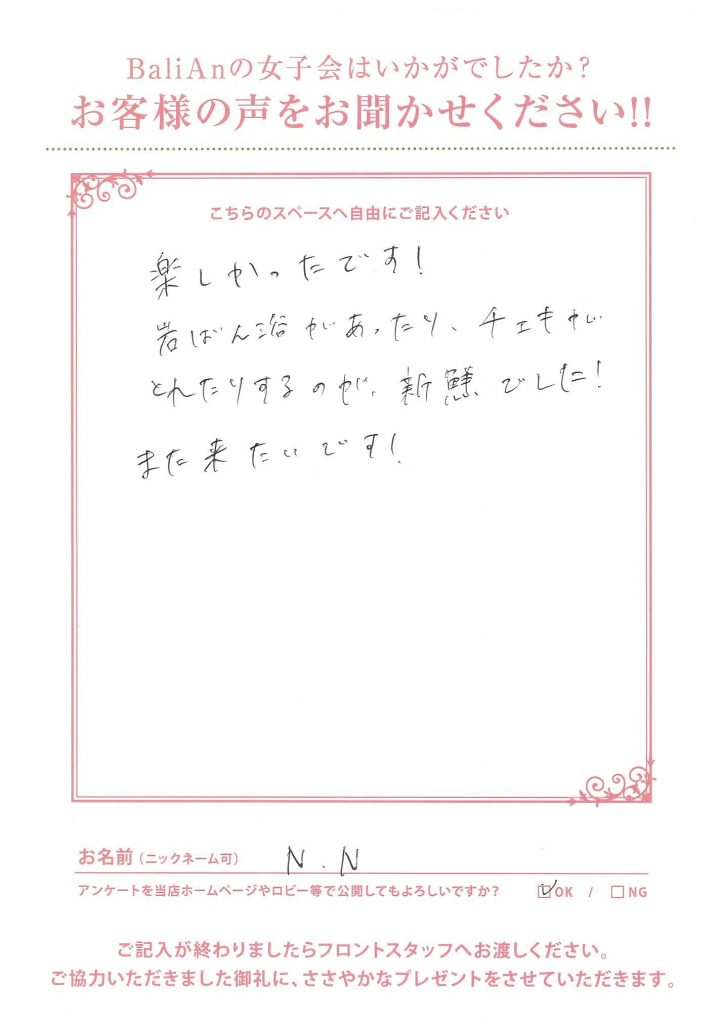 BaliAnの女子会はいかがでしたか?
お客様の声をお聞かせください!!
こちらのスペースへ自由にご記入ください
楽しかったです!
岩ばん浴があったり、チェキが
とれたりするのが、新鮮でした!
また来たいです!
お名前(ニックネーム可) N.N
アンケートを当店ホームページやロビー等で公開してもよろしいですか? ☑OK / □NG
ご記入が終わりましたらフロントスタッフへお渡しください。
ご協力いただきました御礼に、ささやかなプレゼントをさせていただきます。